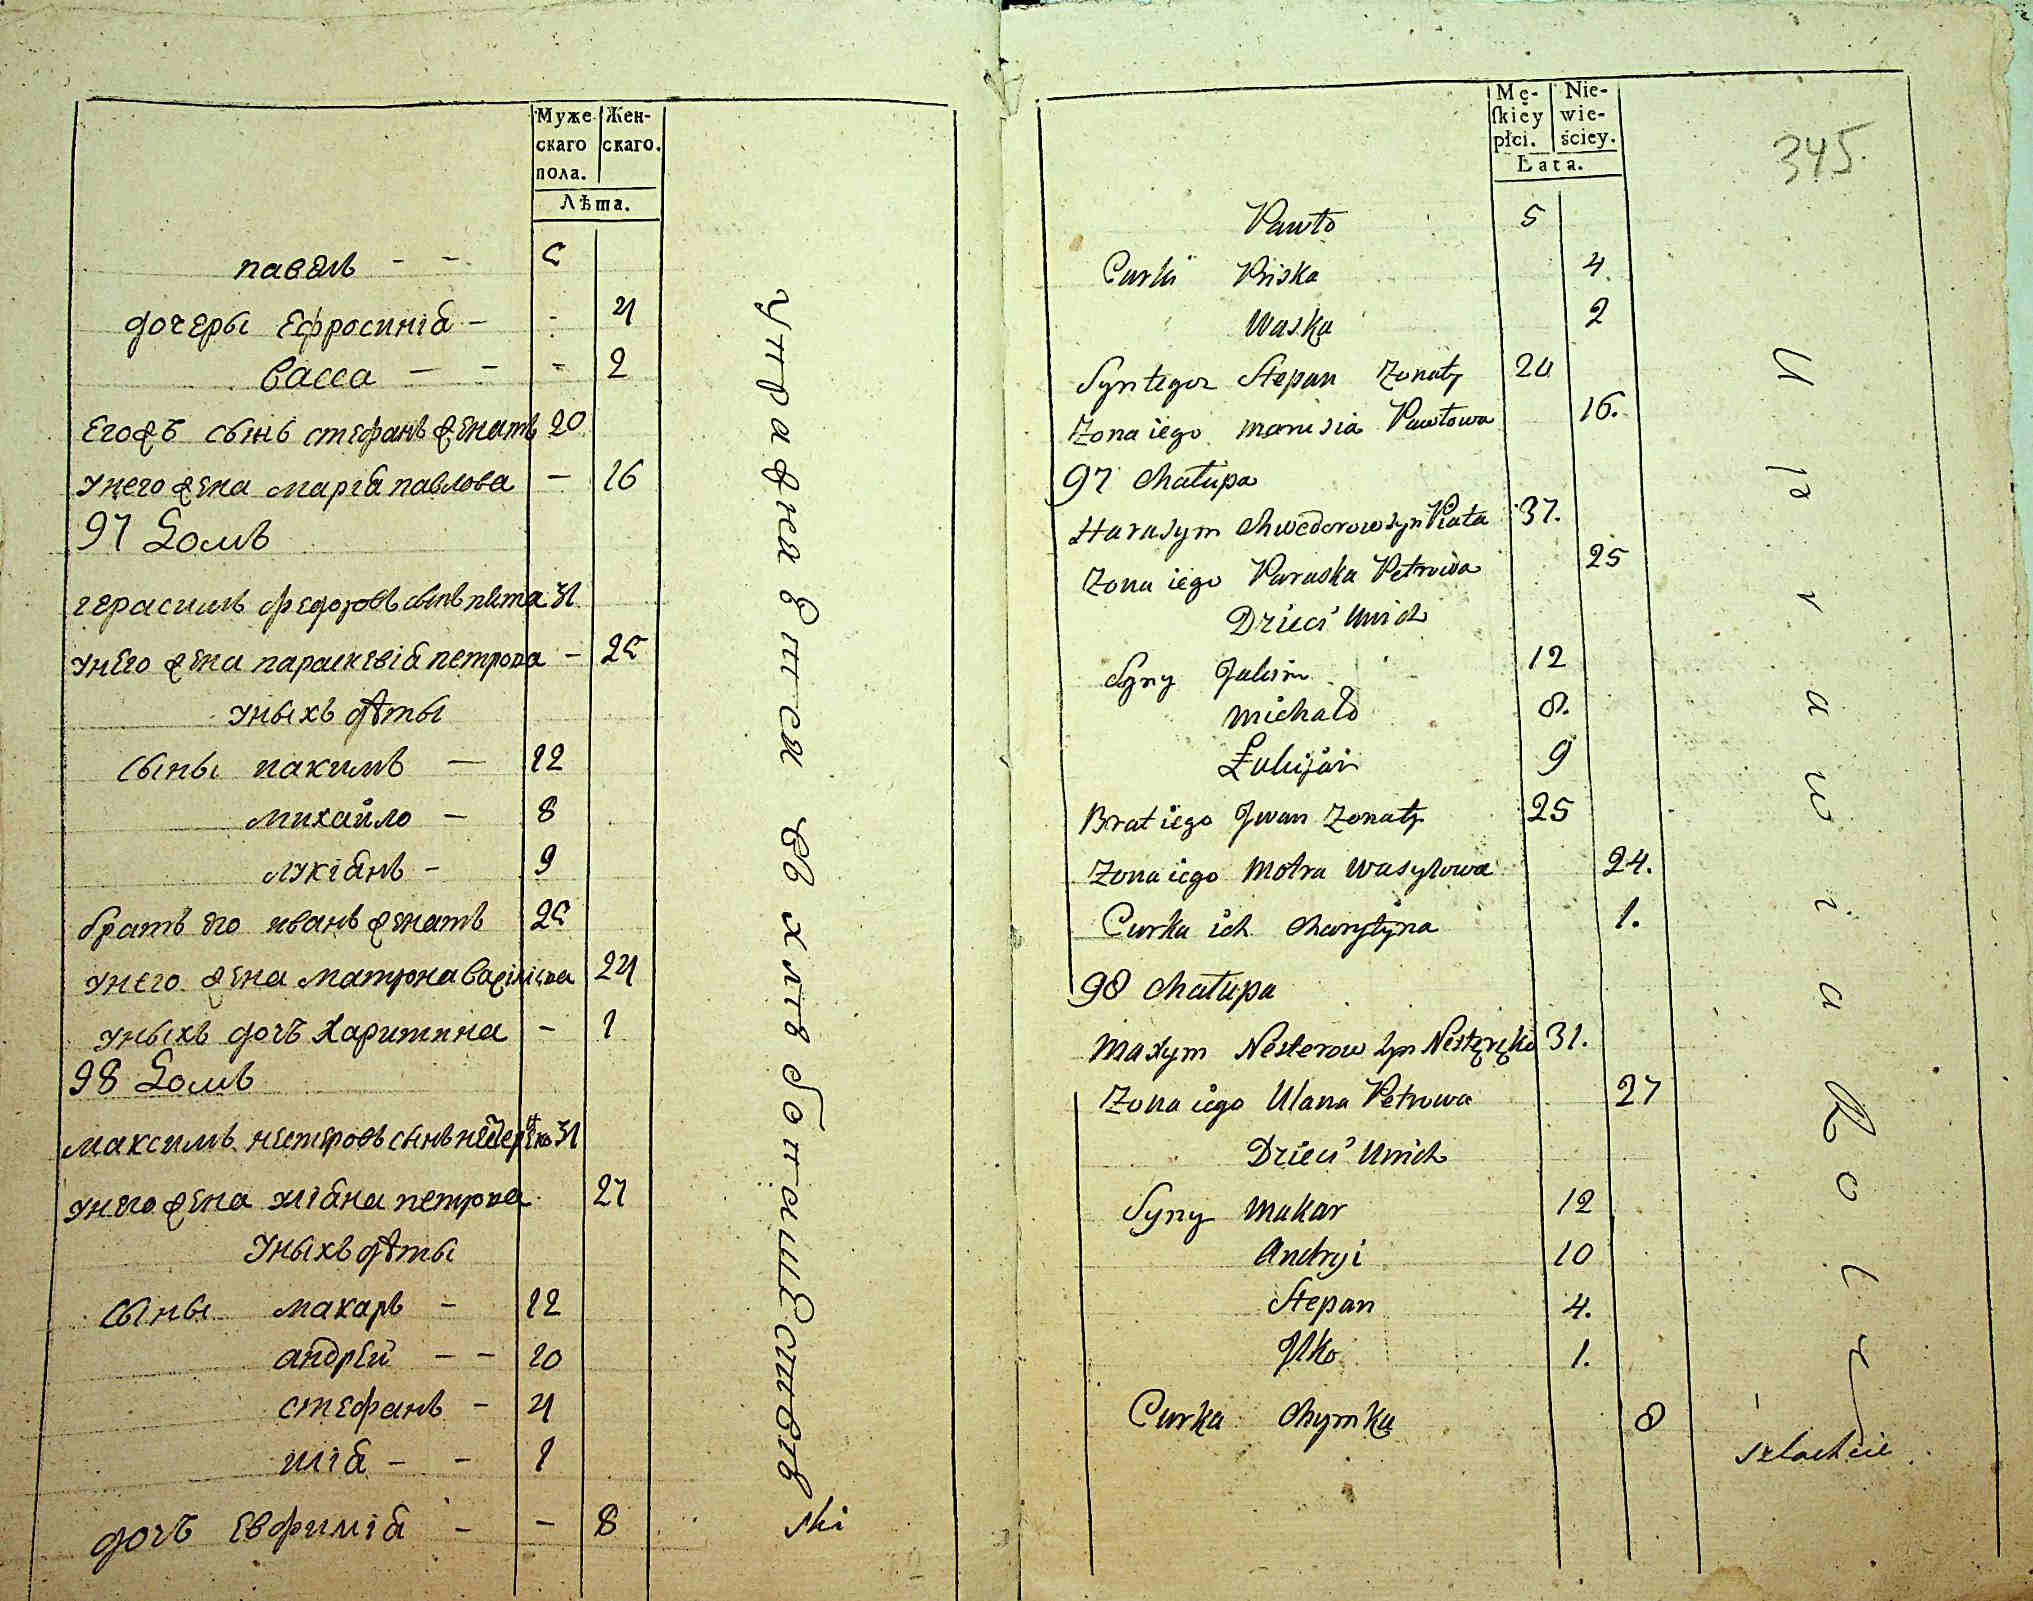 Муже-
скаго
пола.
Жен-
скаго.
Лѣта.
павелъ - - 5
дочеры Ефросинїа - - 4
васса - - - 2
Егожъ сынъ стефанъ женатъ 20
унего жена марїа павлова - 16
97 Домъ
герасимъ федоровъ сынъ пята 37
унего жена параскевїа петрова - 25
уныхъ дѣты
сыны иакимъ - 12
михайло - 8
лукїанъ - 9
братъ его иванъ женатъ 25
унего жена матрона василїева 24
уныхъ дочъ харитина - 1
98 Домъ
максимъ нестеровъ сынъ 31
унего жена улїана петрова 27
уныхъ дѣты
сыны макаръ - 12
андрей - - 10
стефанъ - 4
илїа - - 1
дочъ евфимїа - - 8
упражняЕтся въ хлѣбопашЕствѣ
ski
Mę-
ſkiéy
płci.
Nie-
wie-
ściey.
Lata.
345.
Pawło 5
Curki Priska 4.
Waska 2
Syn tegoz Stepan Zonaty 20
Zona iego Marusia Pawłowa 16.
97 Chałupa
Harasym Chwedorow syn Piata 37.
Zona iego Paraska Petrowa 25
Dzieci Unich
Syny Jakim 12
Michało 8.
Łukijan 9
Brat iego Jwan Zonaty 25
Zona iego Motra Wasylowa 24.
Curka ich Charytyna 1.
98 Chałupa
Maxym Nesterow syn 31.
Zona iego Ulana Petrowa 27
Dzieci Unich
Syny Makar 12
Andryi 10
Stepan 4.
Jlko 1.
Curka Chymka 8
Uprawia Rolę
szlachcic.